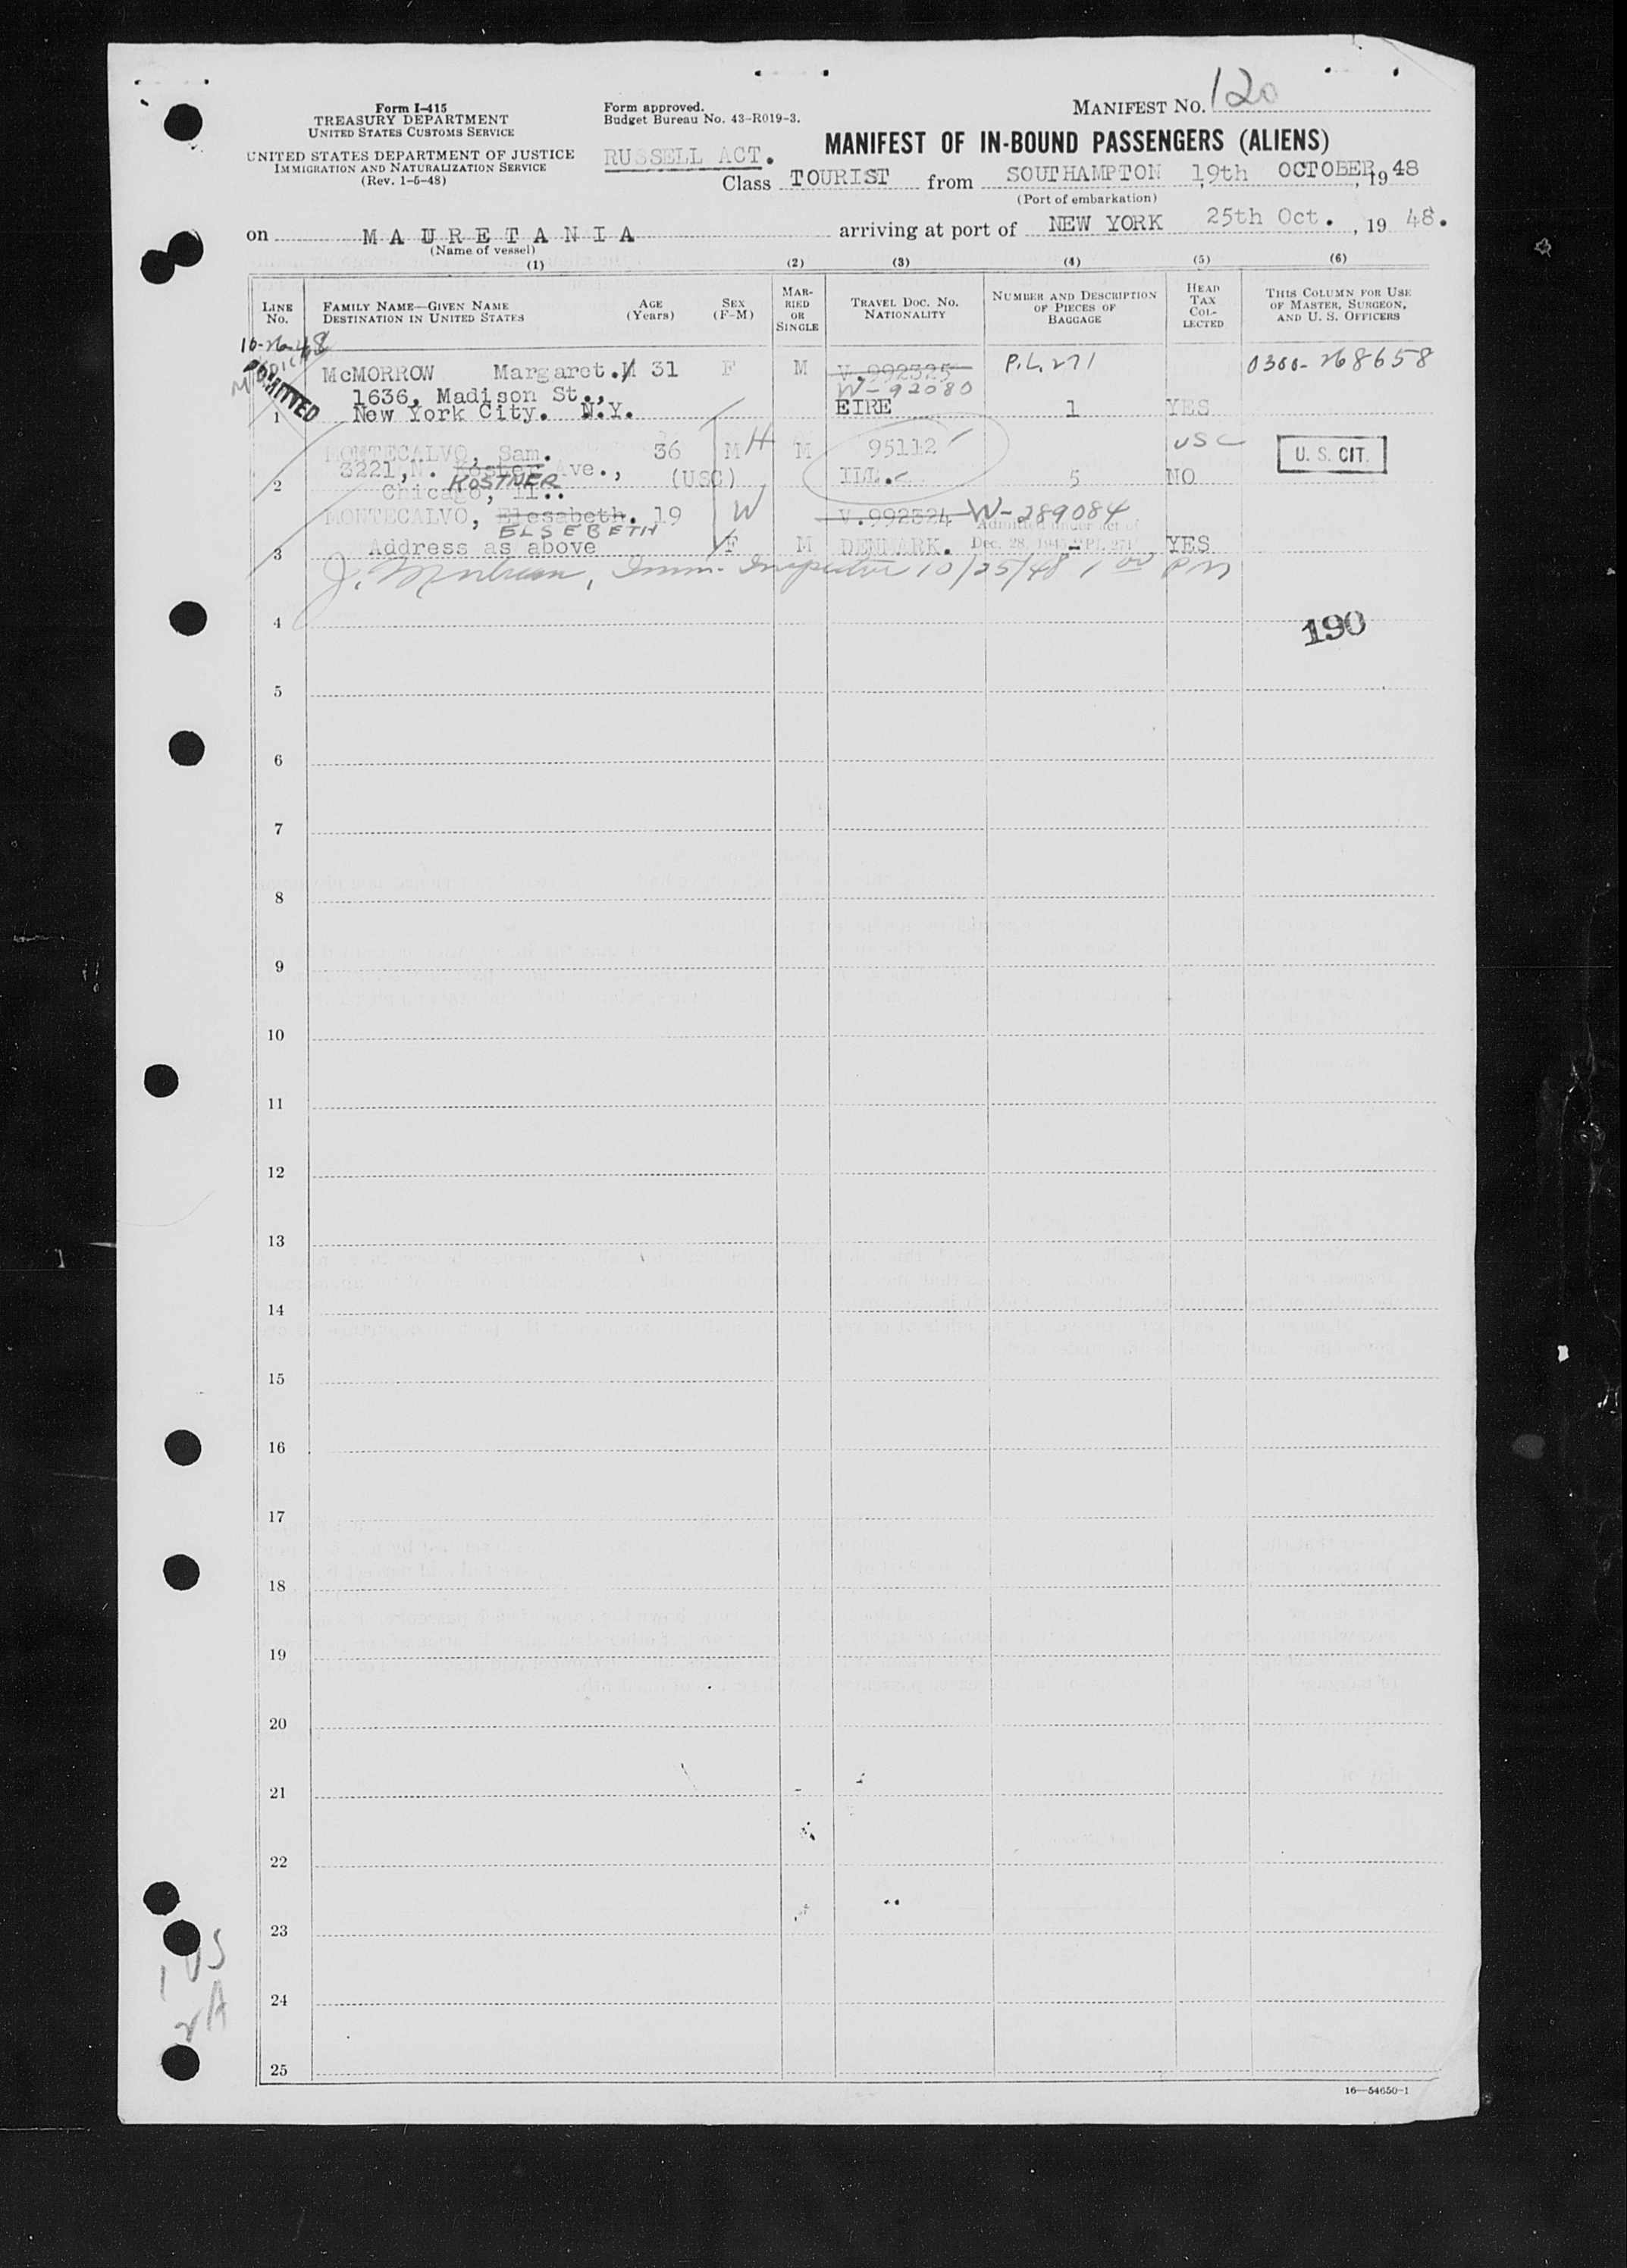 Form I-415
TREASURY DEPARTMENT
UNITED STATES CUSTOMS SERVICE
UNITED STATES DEPARTMENT OF JUSTICE
IMMIGRATION AND NATURALIZATION SERVICE
(Rev. 1-5-48)
Form approved.
Budget Bureau No. 43-R019-3.
RUSSELL ACT.
MANIFEST NO. 120
MANIFEST OF IN-BOUND PASSENGERS (ALIENS)
Class TOURIST from SOUTHAMPTON 19th OCTOBER, 1948
(Port of embarkation)
on MAURETANIA arriving at port of NEW YORK 25th Oct., 1948.
(Name of vessel)
(1) (2) (3) (4) (5) (6)
LINE NO.
FAMILY NAME—GIVEN NAME
DESTINATION IN UNITED STATES
AGE (Years)
SEX (F-M)
MARRIED OR SINGLE
TRAVEL DOC. NO.
NATIONALITY
NUMBER AND DESCRIPTION OF PIECES OF BAGGAGE
HEAD TAX COLLECTED
THIS COLUMN FOR USE OF MASTER, SURGEON, AND U. S. OFFICERS
10-26-48
ADMITTED
McMORROW Margaret.M 31 F M V.992325 P.L. 271 0300-268658
W-92080
1636, Madison St.,
1 New York City. N.Y. EIRE 1 YES
MONTECALVO, Sam. 36 M H M 95112 USC U. S. CIT.
3221, N. Koster Ave., (USC) ILL. 5 NO
KOSTNER
2 Chicago, Il..
MONTECALVO, Elesabeth. 19 W V.992324 W-289084
ELSEBETH
Admitted under act of
Dec. 28, 1945 (PL 271)
3 Address as above F M DENMARK. - YES
Imm. Inspector 10/25/48 1 00 PM
4
190
5
6
7
8
9
10
11
12
13
14
15
16
17
18
19
20
21
22
23
24
25
1 US
2 A
16—54650-1